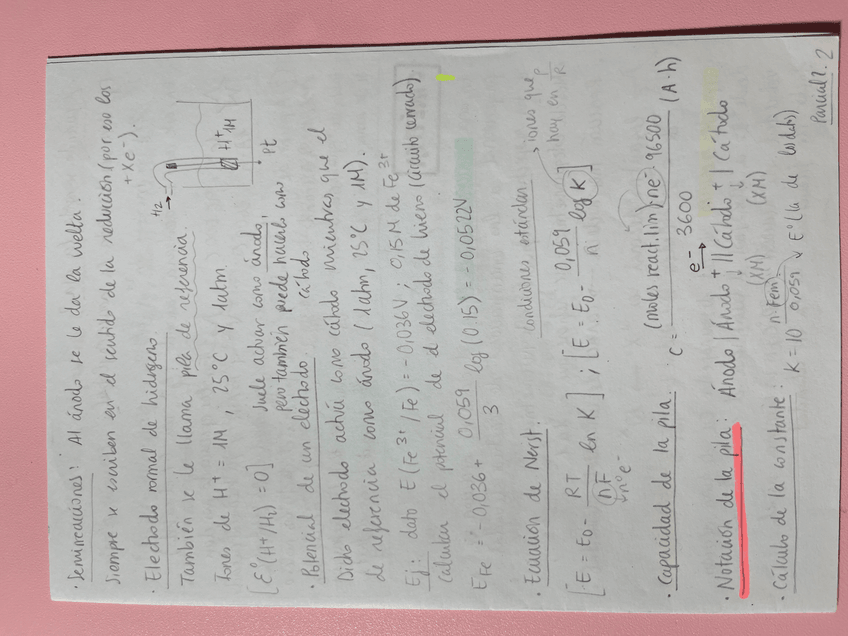 · Semirreacciones: Al ánodo se le da la vuelta.
Siempre se escriben en el sentido de la reducción (por eso los
+ Xe⁻).
· Electrodo normal de hidrógeno
También se le llama pila de referencia
H2
H⁺
1M
Pt
Iones de H⁺ = 1M, 25°C y 1atm
[ε°(H⁺/H₂) = 0]
Suele actuar como ánodo,
pero también puede hacerlo como
cátodo
· Potencial de un electrodo.
Dicho electrodo actúa como cátodo mientras que el
de referencia como ánodo (1atm, 25°C y 1M).
Ej: dato E(Fe³⁺/Fe) = -0,036V ; 0,15M de Fe³⁺
Calcular el potencial de el electrodo de hierro (circuito cerrado).
E Fe = -0,036 + 0,059/3 log (0.15) = -0,0522V
· Ecuación de Nerst.
condiciones estándar.
iones que
hay en P/R
[E = E₀ - RT/nF ln K] ; [E = E₀ - 0,059/n log K]
nº e⁻
· Capacidad de la pila. c = (moles react. lim) · ne⁻ · 96500 / 3600 (A·h)
e⁻
· Notación de la pila: Ánodo | Ánodo⁺ || Cátodo⁺ | Cátodo
(XM) (XM)
· Cálculo de la constante: K = 10 n·Fem/0,059
E° (la de los datos)
Parcial 2.2